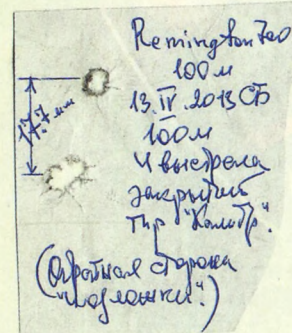 Remington 700
100 м
13.IV.2013 СБ
100 м
4 выстрела
закрытый
тир "Калибр".
(Обратная сторона
"подложки".)